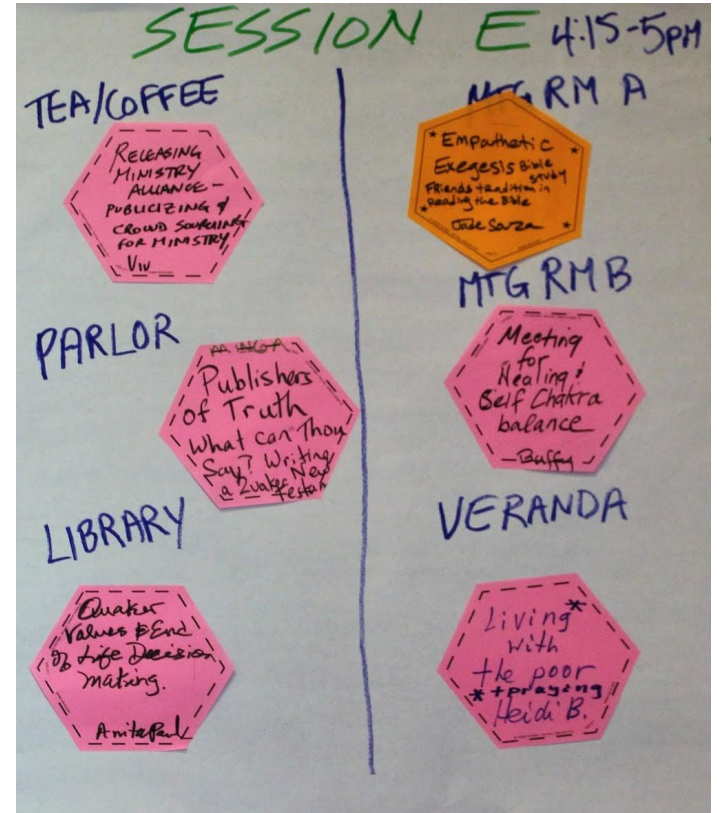 SESSION E 4:15-5PM
TEA/COFFEE
RELEASING
MINISTRY
ALLIANCE-
PUBLICIZING &
CROWD SOURCING
FOR MINISTRY
Viv
PARLOR
Publishers
of Truth
What can Thou
Say? Writing
a Quaker New
Testam
LIBRARY
Quaker
Values & End
of Life Decision
making.
Anita Paul
MTG RM A
Empathetic
Exegesis Bible
study
Friends tradition in
reading the Bible
Jade Souza
MTG RM B
Meeting
for
Healing &
Self Chakra
balance
-Buffy-
VERANDA
Living*
with
the poor
*+praying
Heidi B.